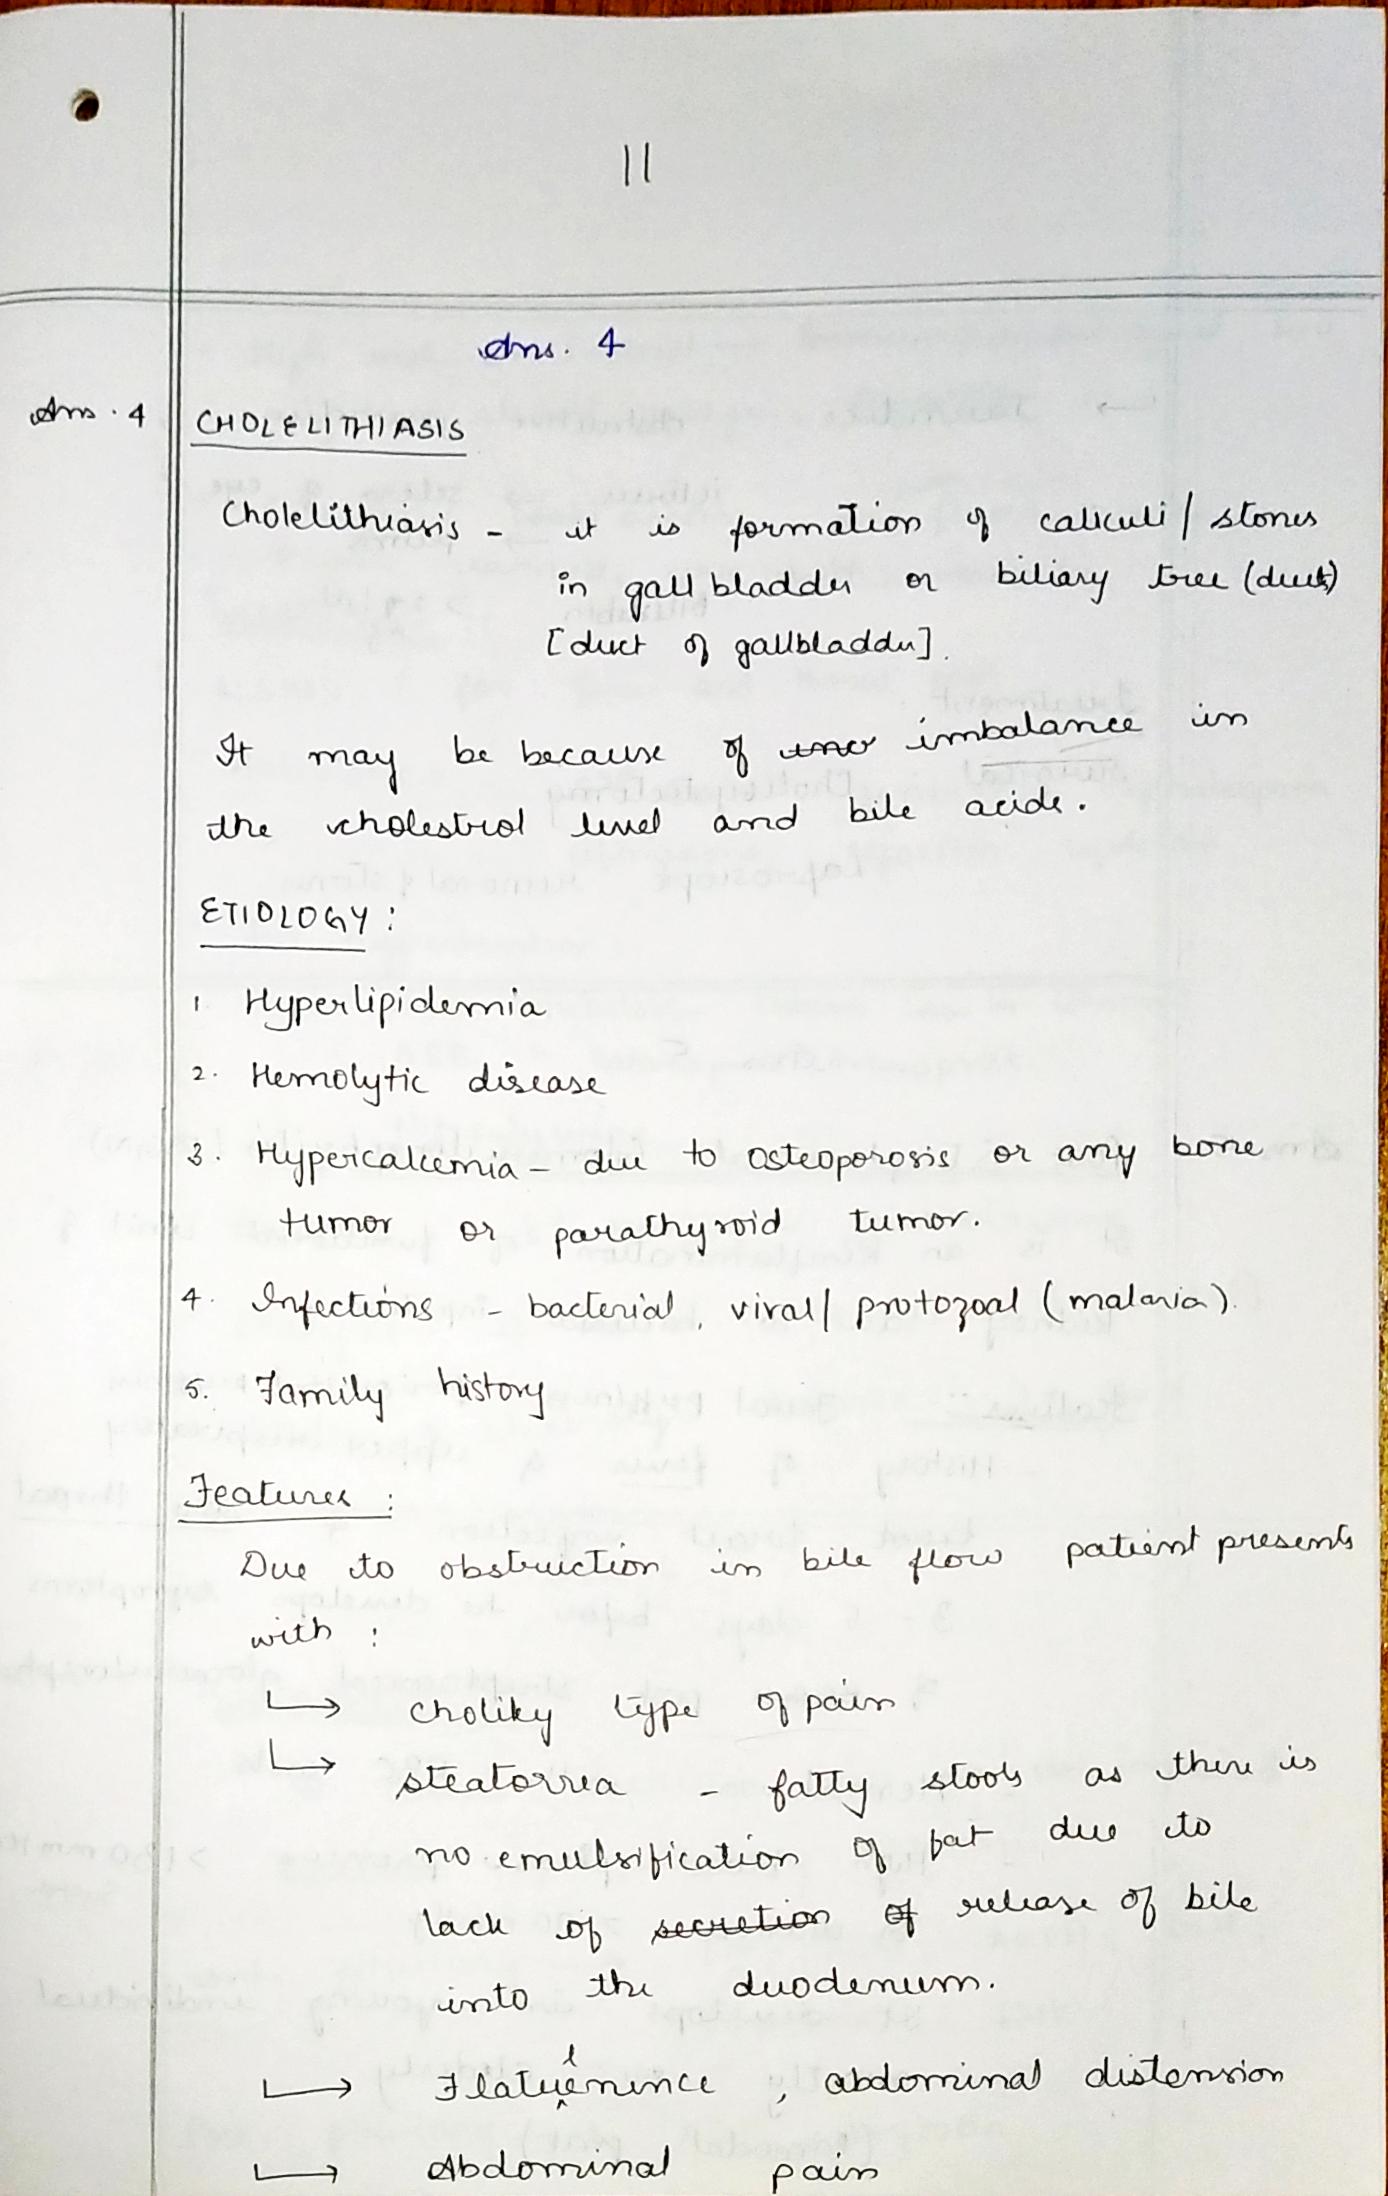 11
Ans. 4
Ans. 4 CHOLELITHIASIS
Cholelithiasis - it is formation of calculi / stones
in gall bladder or biliary tree (duct)
[duct of gallbladder].
It may be because of imbalance in
the cholestrol level and bile acids.
ETIOLOGY :
1. Hyperlipidemia
2. Hemolytic disease
3. Hypercalcemia - due to osteoporosis or any bone
tumor or parathyroid tumor.
4. Infections - bacterial, viral/ protozoal (malaria).
5. Family history
Features :
Due to obstruction in bile flow patient presents
with :
↳ choliky type of pain
↳ steatorrea - fatty stools as there is
no emulsification of fat due to
lack of secretion of release of bile
into the duodenum.
↳ Flatuelnence, abdominal distension
↳ Abdominal pain